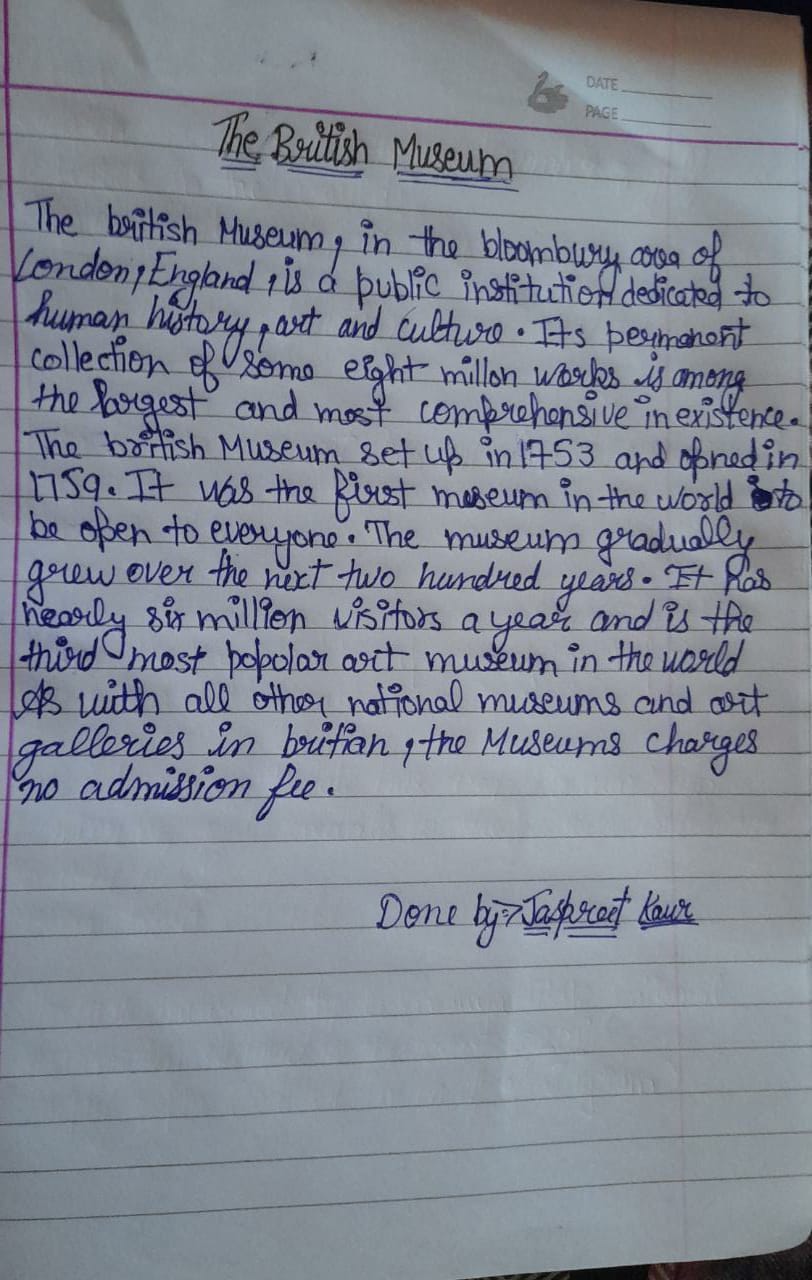 DATE
PAGE
The British Museum
The british Museum, in the bloombury area of
London, England, is a public institution dedicated to
human history, art and culture. Its permanent
collection of some eight millon works is among
the largest and most comprehensive in existence.
The british Museum set up in 1753 and opned in
1759. It was the first meseum in the world to
be open to everyone. The museum gradually
grew over the next two hundred years. It has
nearly six million visitors a year and is the
third most popolar art museum in the world
As with all other national museums and art
galleries in britian, the Museums charges
no admission fee.
Done by⇒ Jaspreet Kaur